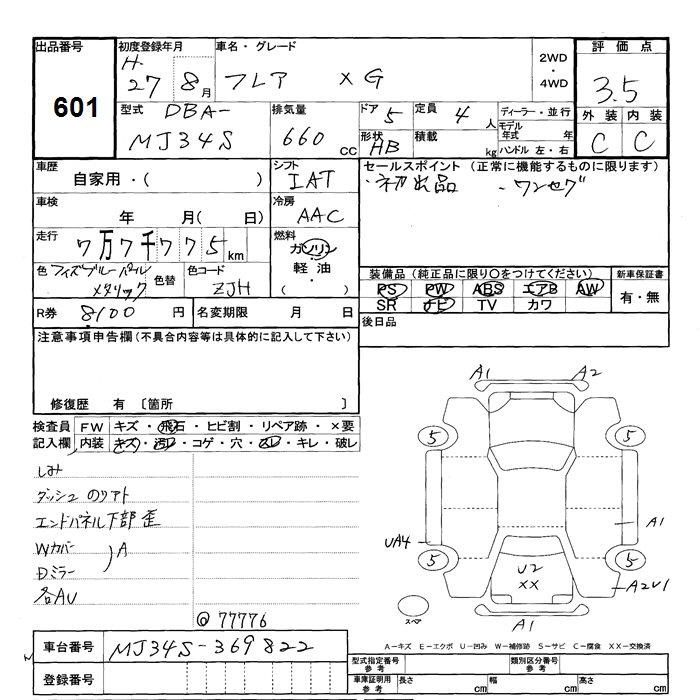 出品番号 初度登録年月 車名・グレード 2WD・4WD 評価点
601 H 27 8月 フレア XG 3.5
型式 DBA- 排気量 ドア 5 定員 4人 ディーラー・並行 外装 内装
MJ34S 660 CC 形状 HB 積載 kg モデル年式 年 C C
ハンドル 左・右
車歴 シフト セールスポイント (正常に機能するものに限ります)
自家用・( ) IAT ・初出品 ・ワンセグ
車検 冷房
年 月( 日) AAC
走行 燃料
7万7千775km ガソリン
軽油
・( )
色 色替 色コード 装備品 (純正品に限り○をつけてください) 新車保証書
フィズブルーパール ZJH PS PW ABS エアB AW 有・無
メタリック SR ナビ TV カワ
R券 8100 円 名変期限 月 日 後日品
注意事項申告欄 (不具合内容等は具体的に記入して下さい)
修復歴 有 〔箇所 〕
検査員 FW キズ・飛石・ヒビ割・リペア跡・×要
記入欄 内装 キズ・汚レ・コゲ・穴・スレ・キレ・破レ
しみ
ダッシュ のりアト
エンドパネル下部歪
Wカバー
Dミラー
A
各AU
@77776
A1 A2
5 5
UA4 A1
5 5
U2
XX
A2U1
スペア
A1
A−キズ E−エクボ U−凹み W−補修跡 S−サビ C−腐食 XX−交換済
車台番号 MJ34S-369822
型式指定番号 参考 類別区分番号 参考
登録番号
車庫証明用 参考 長さ cm 幅 cm 高さ cm